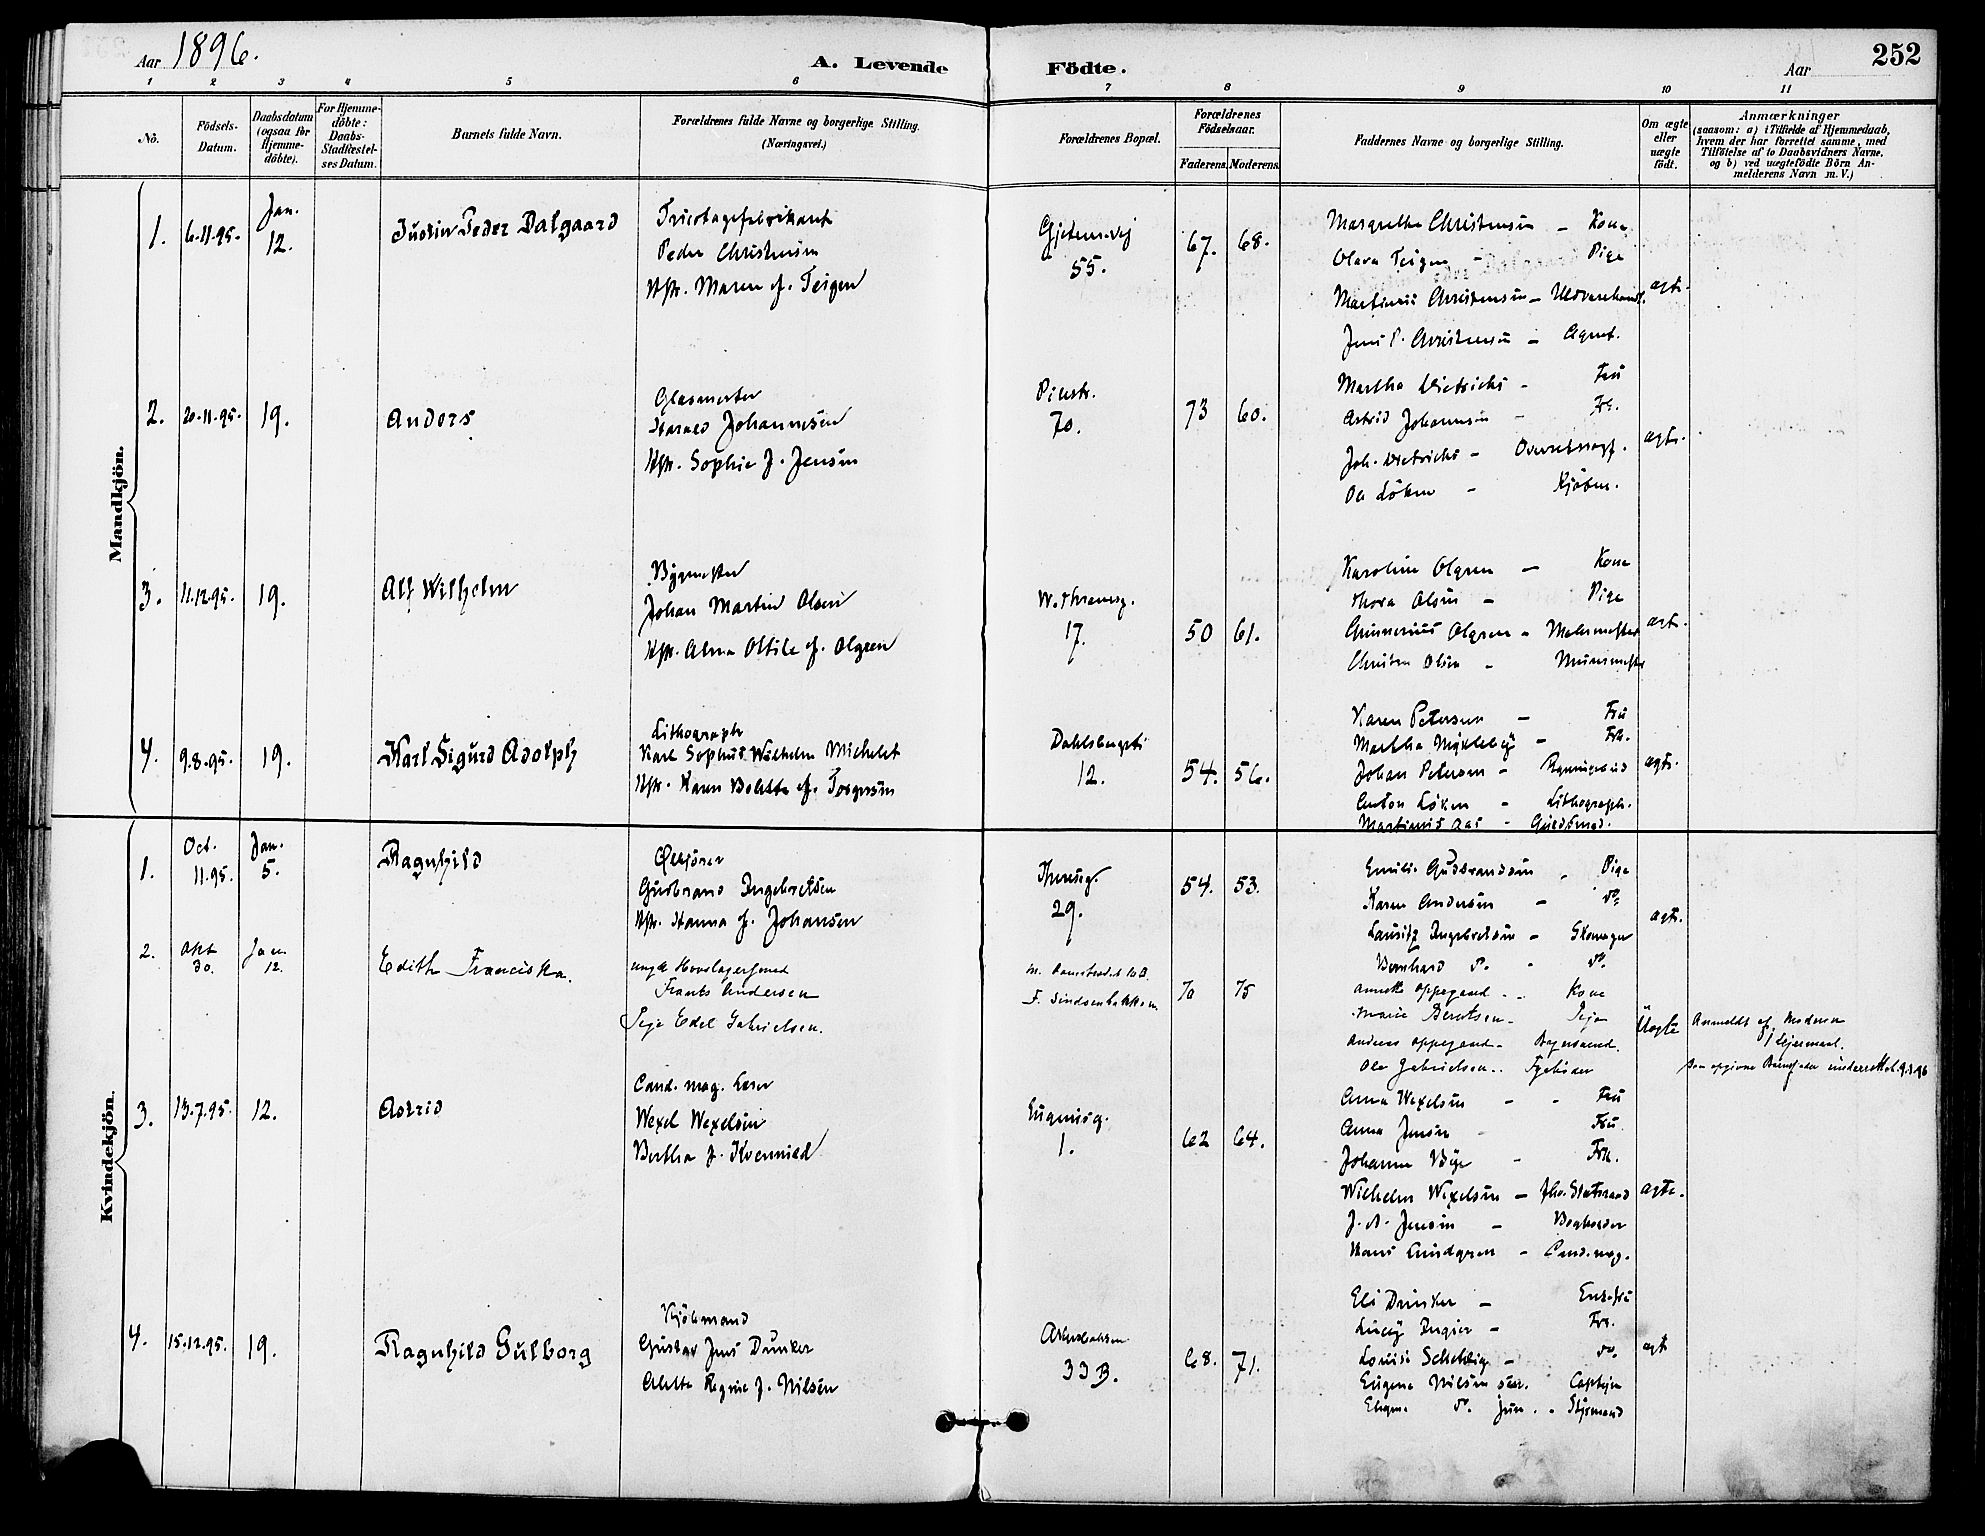 Aar 1896.
A. Levende Födte.
Aar
252
1 2 3 4 5 6 7 8 9 10 11
Nö.
Födsels-Datum.
Daabsdatum (ogsaa for Hjemme-döbte).
For Hjemme-döbte: Daabs-Stadfæstel-ses Datum.
Barnets fulde Navn.
Forældrenes fulde Navne og borgerlige Stilling. (Næringsvei.)
Forældrenes Bopæl.
Forældrenes Födselsaar.
Faderens. Moderens.
Faddernes Navne og borgerlige Stilling.
Om ægte eller uægte födt.
Anmærkninger
(saasom: a) i Tilfælde af Hjemmedaab, hvem der har forrettet samme, med Tilföielse af to Daabsvidners Navne, og b) ved uægtefödte Börn Anmelderens Navn m. V.)
Mandkjön.
1. 6-11-95. Jan. 12. Justin Peder Dalgaard
Tricotagefabrikant
Peder Christensen
Hstr. Maren f. Teigen
55.
67. 68.
Margrethe Christensen - Kone
Olava Teigen - Pige
Martinus Christensen -
Jens P. Christensen - Agent.
ægte.
2. 20-11-95. 19. Anders
Glasmester
Harald Johannesen
Hstr. Sophie f. Jensen
Pilestr.
70.
73 60.
Martha Dietrichs - Fru
Astrid Johannesen - Frk.
Joh. Dietrichs -
Ole Löken - Kjöbm.
ægte.
3. 11.12.95. 19. Alf Wilhelm
Bygmester
Johan Martin Olsen
Hstr. Alma Ottile f. Olgren
W. Thranesg.
17.
50 61.
Karoline Olgren - Kone
Thora Olsen - Pige
Gunnerius Olgren - Malermester
Christen Olsen - Murermester
ægte.
4. 9.8.95. 19. Karl Sigurd Adolph
Lithograph
Karl Sophus Wilhelm Michelet
Hstr. Karen Bolette f. Torgersen
Dahlsbergsti
12.
54. 56.
Karen Petersen - Fru
Martha Nyxleby - Frk.
Johan Petersen -
Anton Löken - Lithograph.
Martinius Aas - Guldsmed.
ægte.
Kvindekjön.
1. Oct. 11.95. Jan. 5. Ragnhild
Ölkjörer
Gudbrand Ingebretsen
Hstr. Hanna f. Johansen
Theresesg.
29.
54. 53.
Emilie Gudbrandsen - Pige
Karen Andersen - do.
Lauritz Ingebretsen - Skomager
Bernhard do. - do.
ægte.
2. Okt 30. Jan 12. Edith Franciska.
ungk Hovslagersmed
Frants Andersen
Pige Edel Gabrielsen.
F. Sindsenbakken
70 75
Annette Oppegaard - Kone
Marie Berntsen - Pige
Andreas Oppegaard -
Ole Gabrielsen -
Uægte
Anmeldt af Moderen
Den opgivne Barnefader underrettet 9.1.96
3. 13.7.95. 12. Astrid
Cand. mag. Lærer
Wexel Wexelsen
Bertha f. Kvenmied
Eugenisg.
1.
62 64.
Anna Wexelsen - - Fru
Anna Jensen - Fru.
Johanne Bye - Frk.
Wilhelm Wexelsen - fhv. Statsraad
J. A. Jensen -
Hans Lundgren - Cand. mag.
ægte.
4. 15.12.95. 19. Ragnhild Gulborg
Kjöbmand
Gustav Jens Dunker
Alette Regine f. Nilsen
33 B.
68. 71.
Eli Dunker - Enkefru
Lucy Ingier - Frk.
Louise Schelbig - do.
Eugene Nilsen sen. Captejn
Eugene do. jun. - Styrmand
ægte